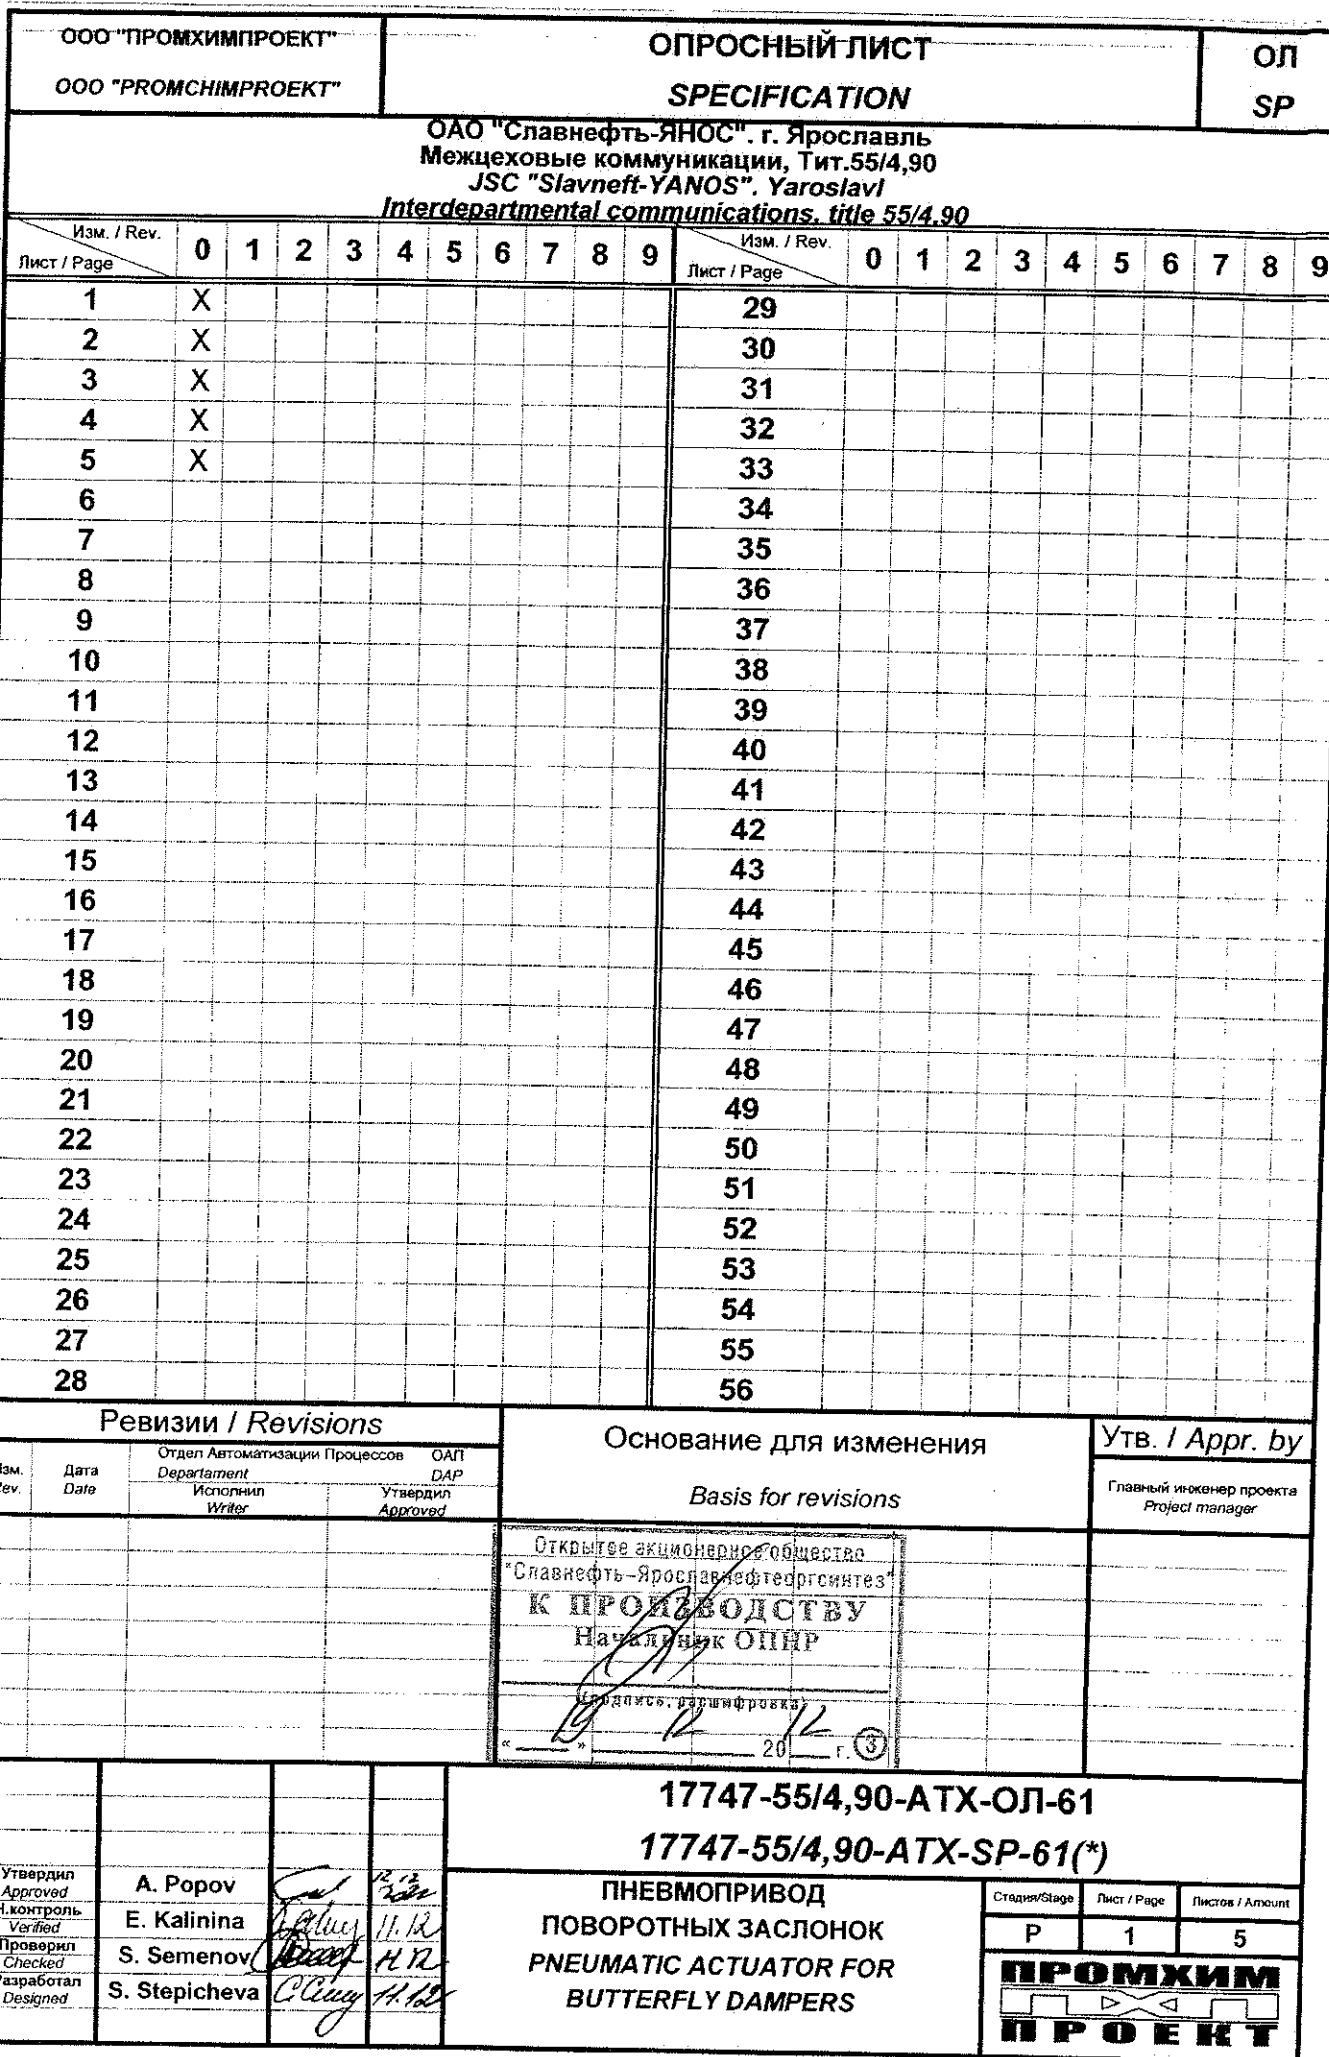 ООО "ПРОМХИМПРОЕКТ"
ООО "PROMCHIMPROEKT"
ОПРОСНЫЙ ЛИСТ
SPECIFICATION
ОЛ
SP
ОАО "Славнефть-ЯНОС". г. Ярославль
Межцеховые коммуникации, Тит.55/4,90
JSC "Slavneft-YANOS". Yaroslavl
Interdepartmental communications, title 55/4,90
Изм. / Rev. 0 1 2 3 4 5 6 7 8 9 Изм. / Rev. 0 1 2 3 4 5 6 7 8 9
Лист / Page Лист / Page
1 X 29
2 X 30
3 X 31
4 X 32
5 X 33
6 34
7 35
8 36
9 37
10 38
11 39
12 40
13 41
14 42
15 43
16 44
17 45
18 46
19 47
20 48
21 49
22 50
23 51
24 52
25 53
26 54
27 55
28 56
Ревизии / Revisions
Дата
Date
Отдел Автоматизации Процессов ОАП
Departament DAP
Исполнил Утвердил
Writer Approved
Основание для изменения
Basis for revisions
Утв. / Appr. by
Главный инженер проекта
Project manager
Открытое акционерное общество
"Славнефть-Ярославнефтеоргсинтез"
К ПРОИЗВОДСТВУ
Начальник ОПНР
(подпись, расшифровка)
" 19 " 12 2012 г. 3
17747-55/4,90-АТХ-ОЛ-61
17747-55/4,90-ATX-SP-61(*)
Утвердил
Approved
A. Popov
Н.контроль
Verified
E. Kalinina 11.12
Проверил
Checked
S. Semenov
Разработал
Designed
S. Stepicheva 11.12
ПНЕВМОПРИВОД
ПОВОРОТНЫХ ЗАСЛОНОК
PNEUMATIC ACTUATOR FOR
BUTTERFLY DAMPERS
Стадия/Stage Лист / Page Листов / Amount
Р 1 5
ПРОМХИМ
ПРОЕКТ